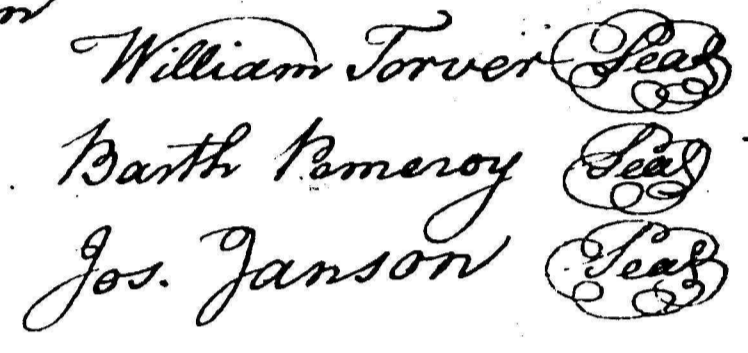 William Torver Seal
Barth Pomeroy Seal
Jos. Janson Seal